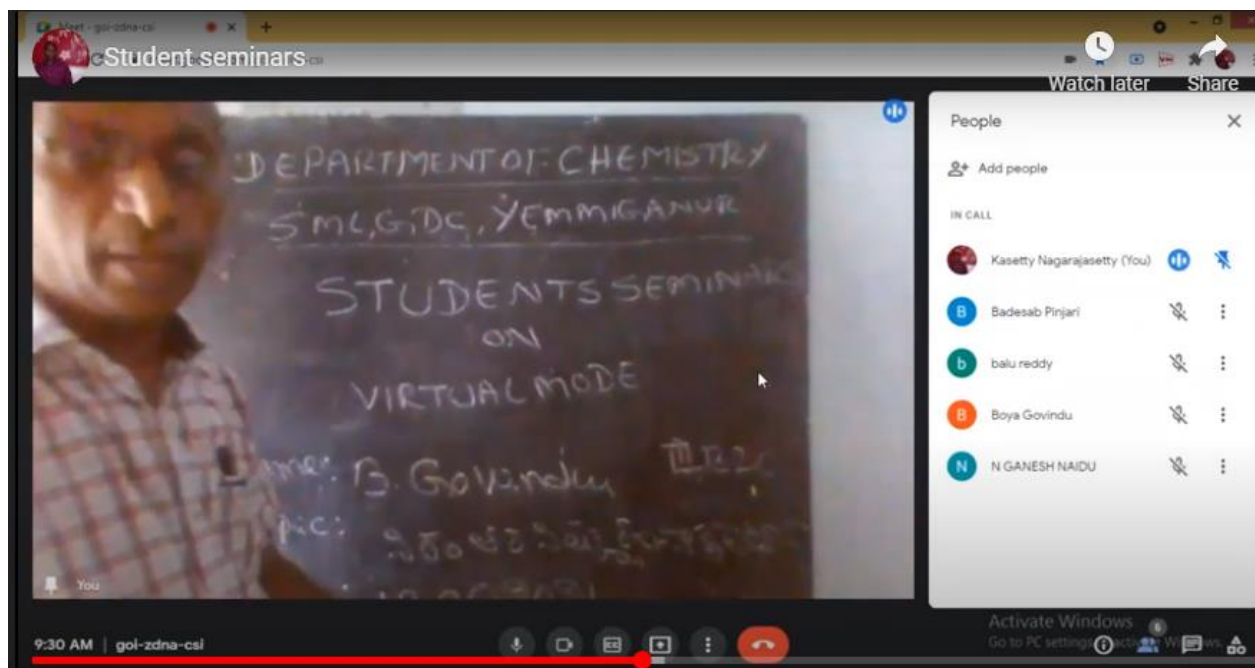 Meet - goi-zdna-csi
Student seminars
Watch later
Share
DEPARTMENT OF CHEMISTRY
SML, GDC, YEMMIGANUR
STUDENTS SEMINAR
ON
VIRTUAL MODE
B. Govindu
You
People
Add people
IN CALL
Kasetty Nagarajasetty (You)
B Badesab Pinjari
b balu reddy
B Boya Govindu
N N GANESH NAIDU
Activate Windows
Go to PC settings
6
9:30 AM | goi-zdna-csi